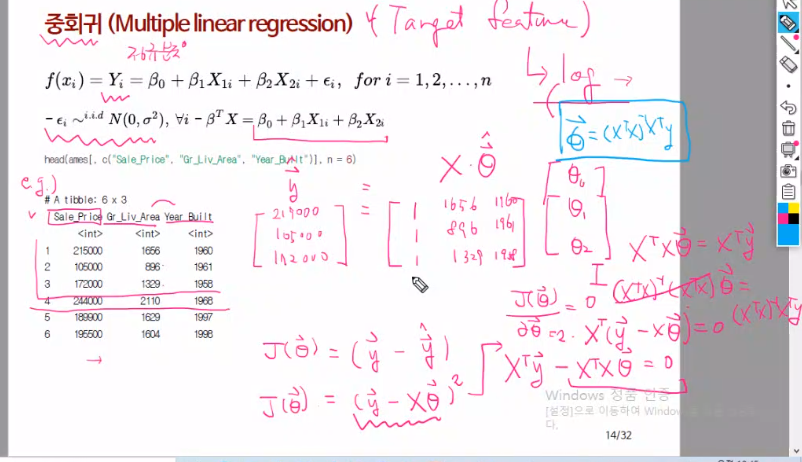 중회귀 (Multiple linear regression) (Target feature)
정규분포
↳ log →
f(xᵢ) = Yᵢ = β₀ + β₁X₁ᵢ + β₂X₂ᵢ + εᵢ, for i = 1, 2, . . . , n
- εᵢ ~ⁱ·ⁱ·ᵈ N(0, σ²), ∀i - βᵀX = β₀ + β₁X₁ᵢ + β₂X₂ᵢ
θ⃗ = (XᵀX)⁻¹Xᵀy
head(ames[, c("Sale_Price", "Gr_Liv_Area", "Year_Built")], n = 6)
e.g.)
y⃗ = X · θ̂
# A tibble: 6 x 3
Sale_Price Gr_Liv_Area Year_Built
<int> <int> <int>
1 215000 1656 1960
2 105000 896 1961
3 172000 1329 1958
4 244000 2110 1968
5 189900 1629 1997
6 195500 1604 1998
=
1 1656 1960
1 896 1961
1 1329 1958
θ₀
θ₁
θ₂
XᵀXθ⃗ = Xᵀy⃗
I
(XᵀX)⁻¹(XᵀX)θ⃗ =
(XᵀX)⁻¹Xᵀy
J(θ⃗) = 0
∂θ⃗ = 2 · Xᵀ(y⃗ - Xθ⃗) = 0
Xᵀy⃗ - XᵀXθ⃗ = 0
J(θ⃗) = (y⃗ - ŷ)
J(θ⃗) = (y⃗ - Xθ⃗)²
Windows 정품 인증
[설정]으로 이동하여 Windows
다.
14/32